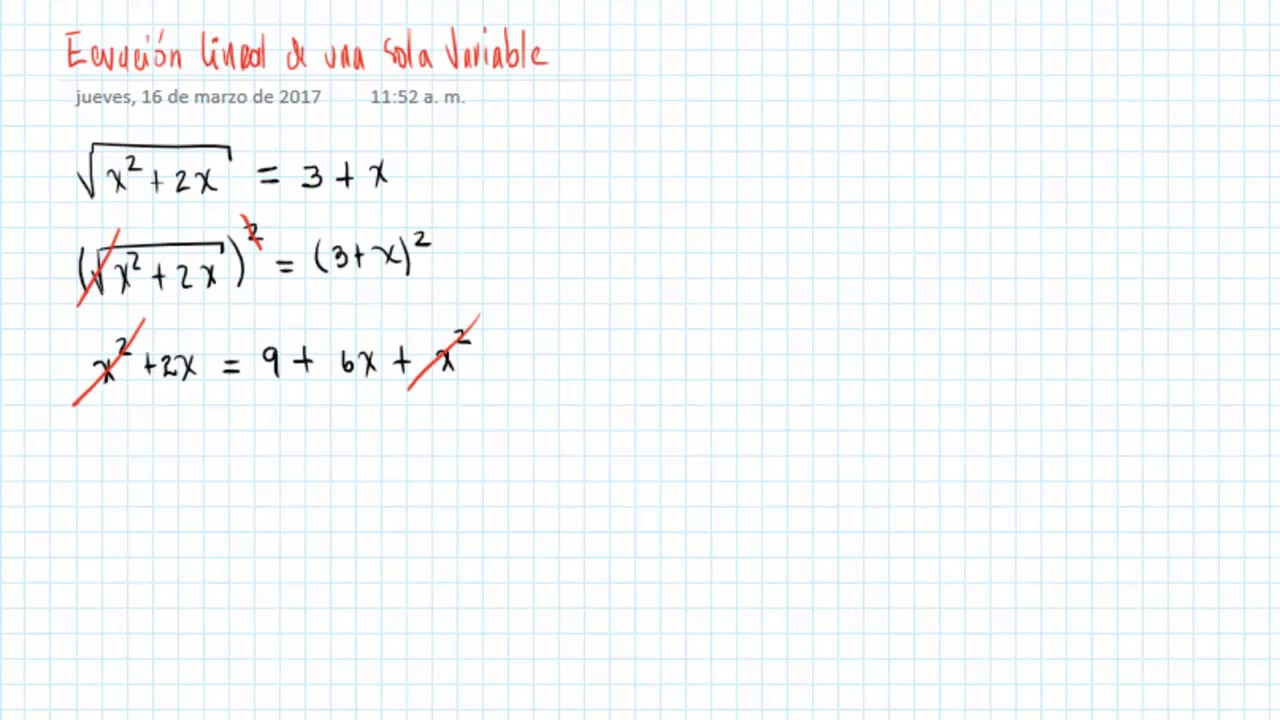 Ecuación lineal de una sola variable
jueves, 16 de marzo de 2017 11:52 a. m.
√(x² + 2x) = 3 + x
(√(x² + 2x))² = (3+x)²
x² + 2x = 9 + 6x + x²